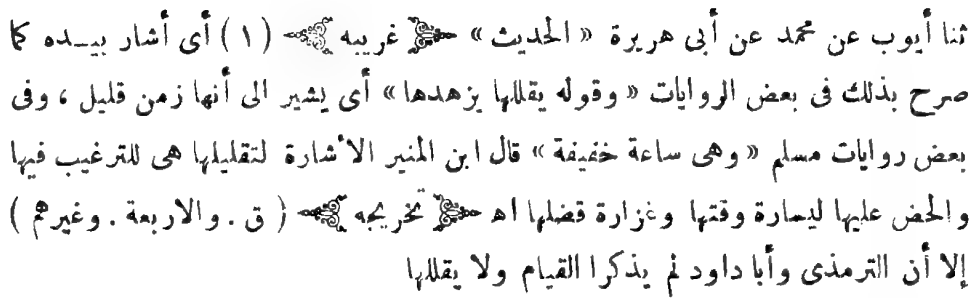 ثنا أيوب عن محمد عن أبى هريرة « الحديث » غريبه (١) أى أشار بيــده كما
صرح بذلك فى بعض الروايات « وقوله يقللها يزهدها » أى يشير الى أنها زمن قليل ، وفى
بعض روايات مسلم « وهى ساعة خفيفة » قال ابن المنير الأشارة لتقليلها هى للترغيب فيها
والحض عليها ليسارة وقتها وغزارة فضلها اه تخريجه ( ق . والاربعة . وغيرهم )
إلا أن الترمذى وأبا داود لم يذكرا القيام ولا يقللها